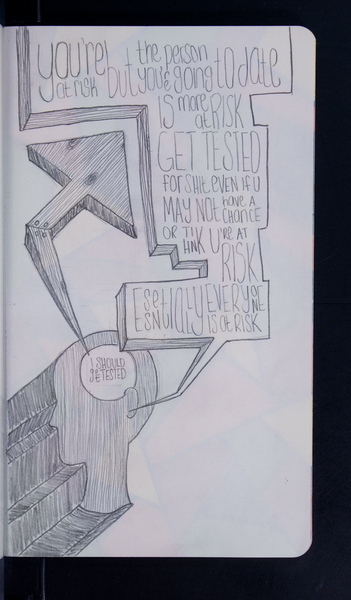 you're the person
at risk but you're going to date
IS more
at RISK
GET TESTED
for SHIT EVEN if U
MAY NOT have A CHANCE
OR TIHNK U're AT
RISK
Esetially EVERYONE
ESNtially is at RISK
I SHOULD
get TESTED